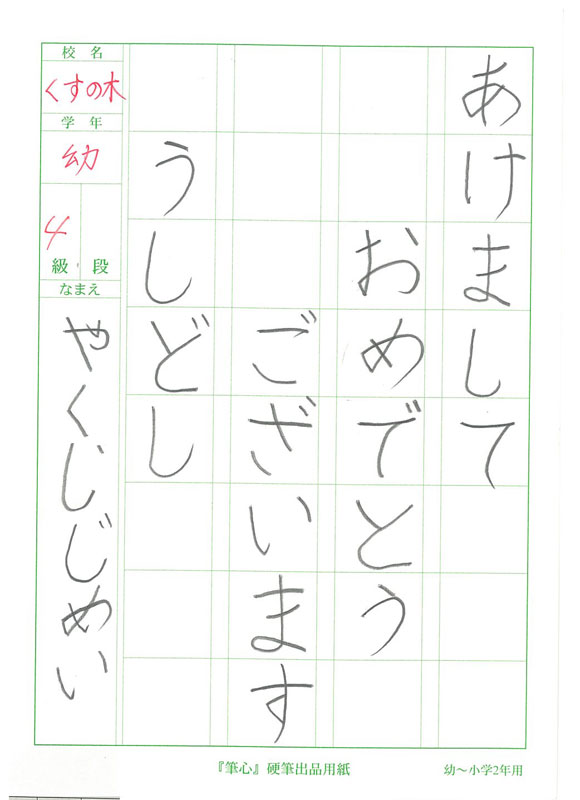 あけまして
おめでとう
ございます
うしどし
校名
くすの木
学年
幼
4
級・段
なまえ
やくしじめい
『筆心』硬筆出品用紙
幼～小学2年用